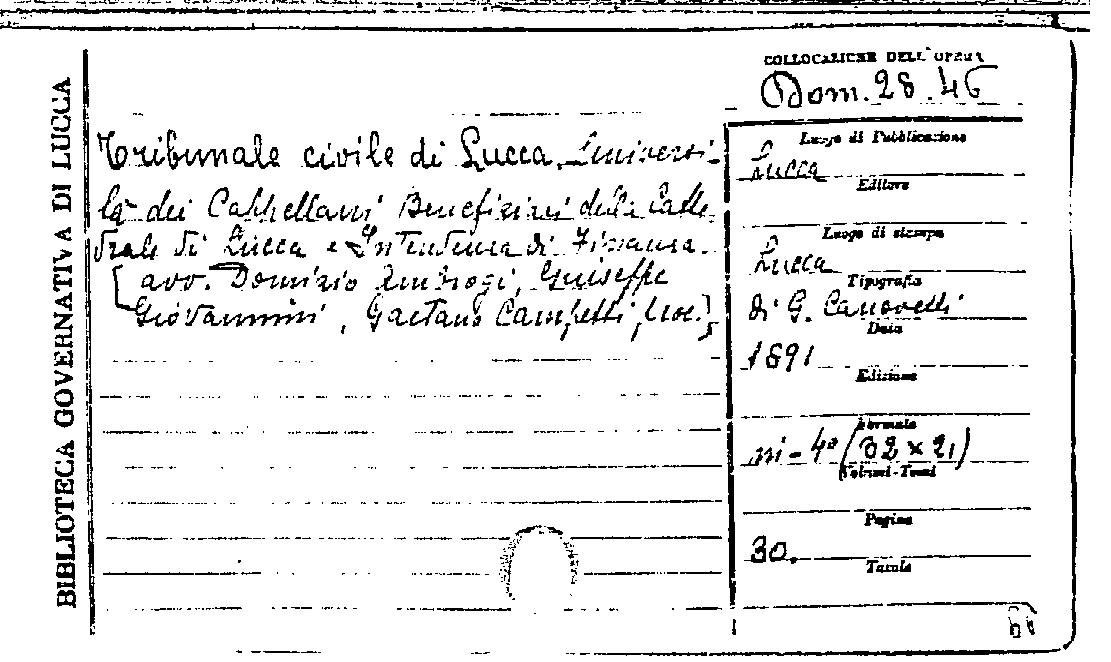 BIBLIOTECA GOVERNATIVA DI LUCCA
COLLOCAZIONE DELL'OPERA
Dom. 28.46
Tribunale civile di Lucca. Universi-
tà dei Cappellani Beneficiari della Catte-
drale di Lucca e Intendenza di Finanza.
[avv. Domizio Ambrogi, Giuseppe
Giovannini, Gaetano Campetti, proc.]
Luogo di Pubblicazione
Lucca
Editore
Luogo di stampa
Lucca
Tipografia
di G. Canovetti
Data
1891
Edizione
Formato
in-4° (32 x 21)
Volumi-Tomi
Pagine
30.
Tavole